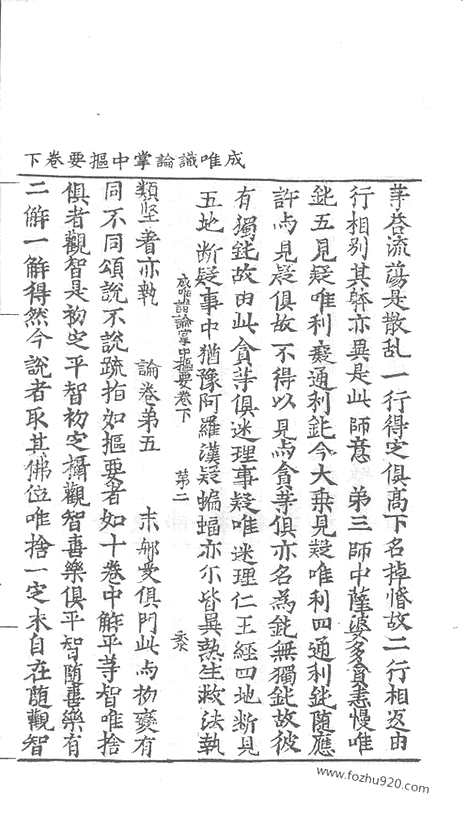 成唯識論掌中摳要卷下
等啓流蕩是散乱一行得定俱高下名掉惛故二行相返由
行相別其躰亦異是此師意 第三師中薩婆多貪恚慢唯
鈍五見疑唯利癡通利鈍今大乗見疑唯利四通利鈍隨應
許与見疑俱故不得以見与貪等俱亦名為鈍無獨鈍故彼
有獨鈍故由此貪等俱迷理事疑唯迷理仁王經四地断見
五地断疑事中猶豫阿羅漢疑蝙蝠亦尒皆異熟生救法執
成唯識論掌中摳要卷下 第二
類堅者亦執 論卷第五 末那受俱門此与初變有
同不同頌說不說䟽指如摳要者如十卷中解平等智唯捨
俱者觀智是初定平智初定攝觀智喜樂俱平智隨喜樂有
二解一解得然今說者取其佛位唯捨一定未自在随觀智
www.fozhu920.com